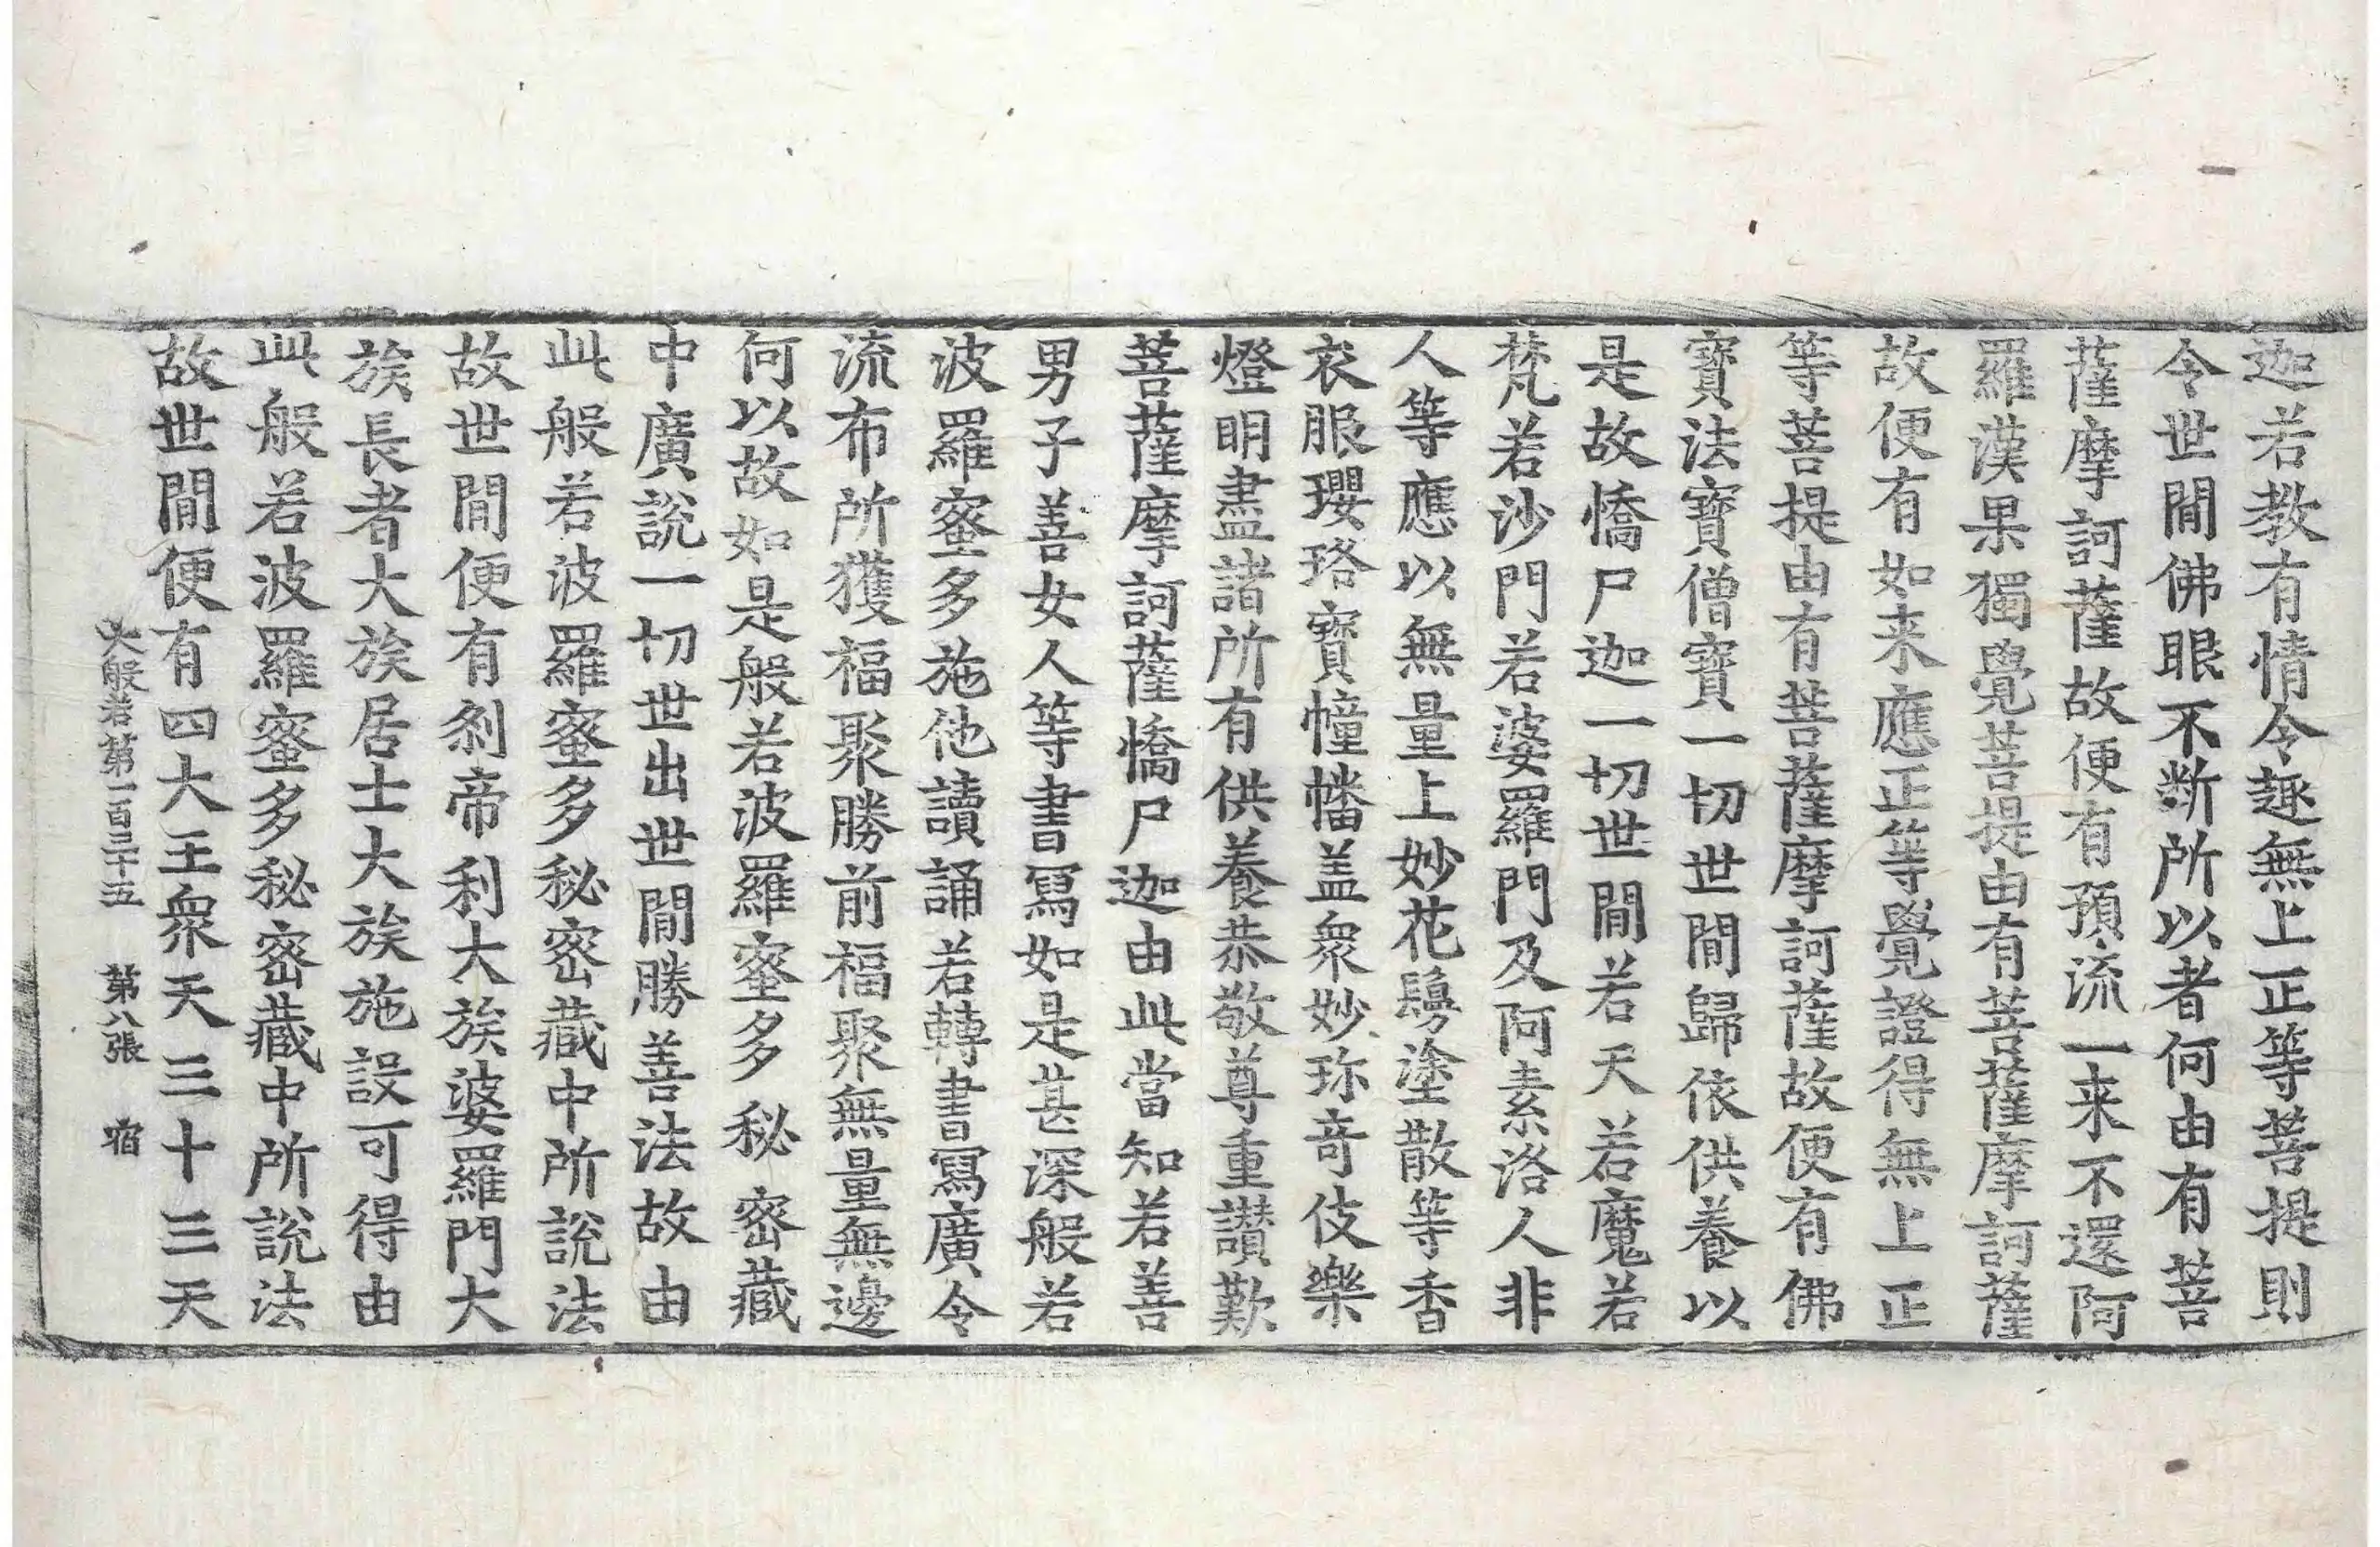 迦若教有情令趣無上正等菩提則
令世間佛眼不断所以者何由有菩
薩摩訶薩故便有預流一来不還阿
羅漢果獨覺菩提由有菩薩摩訶薩
故便有如来應正等覺證得無上正
等菩提由有菩薩摩訶薩故便有佛
寶法寶僧寶一切世間歸依供養以
是故憍尸迦一切世間若天若魔若
梵若沙門若婆羅門及阿素洛人非
人等應以無量上妙花鬘塗散等香
衣服瓔珞寶幢幡盖衆妙珎竒伎樂
燈明盡諸所有供養恭敬尊重讃歎
菩薩摩訶薩憍尸迦由此當知若善
男子善女人等書寫如是甚深般若
波羅蜜多施他讀誦若轉書寫廣令
流布所獲福聚勝前福聚無量無邊
何以故如是般若波羅蜜多秘密藏
中廣說一切世出世間勝善法故由
此般若波羅蜜多秘密藏中所說法
故世間便有剎帝利大族婆羅門大
族長者大族居士大族施設可得由
此般若波羅蜜多秘密藏中所說法
故世間便有四大王衆天三十三天
大般若第一百三十五 第八張 宿